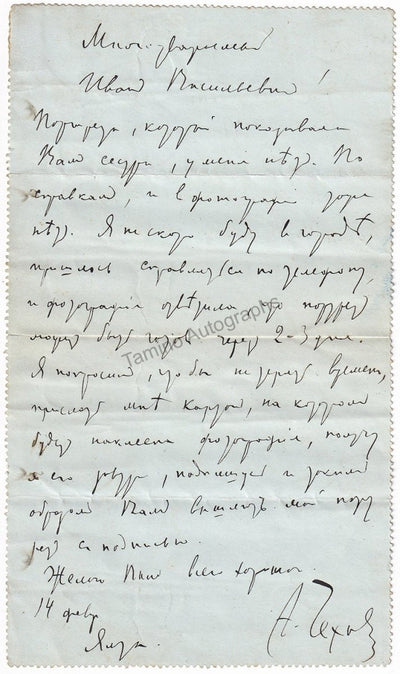 Многоуважаемый
Иван Васильевич!
Портрета, который показывала
Вам сестра, у меня нѣт. По
справкам, и в фотографии тоже
нѣт. Я не скоро буду в городѣ,
пришлось справляться по телефону,
и фотография отвѣтила, что портрет
может быть готов через 2-3 дня.
Я попросил, чтобы не теряя времени,
прислали мнѣ картон, на котором
будет наклеена фотография, получу
я его завтра, подпишу и таким
образом Вам вышлют мой порт
рет с подписью.
Желаю Вам всего хорошего.
14 февр.
Ялта.
А. Чехов
Tamino Autographs